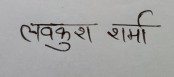 लवकुश शर्मा